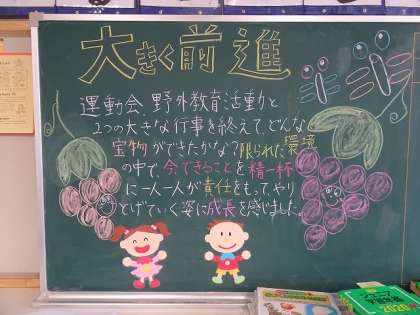 大きく前進
運動会、野外教育活動と
2つの大きな行事を終えて、どんな
宝物ができたかな？限られた環境
の中で、今、できることを精一杯
に一人一人が責任をもって、やり
とげていく姿に成長を感じました。